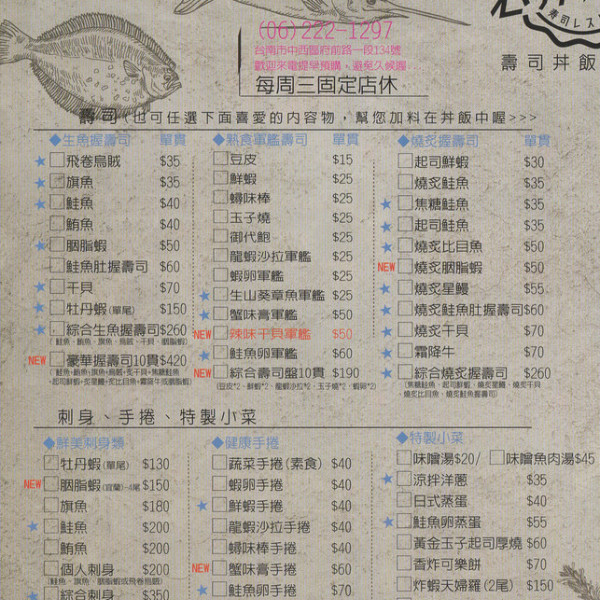 (06)222-1297
台南市中西區府前路一段134號
歡迎來電提早預購，避免久候喔
每周三固定店休
壽司丼飯
壽司(也可任選下面喜愛的內容物，幫您加料在丼飯中喔>>>
◆生魚握壽司 單貫
★飛卷烏賊 $35
★旗魚 $35
★鮭魚 $40
鮪魚 $40
★胭脂蝦 $50
鮭魚肚握壽司 $60
★干貝 $70
★牡丹蝦(單尾) $150
★綜合生魚握壽司$260
(鮭魚、鮪魚、旗魚、烏賊、干貝、胭脂蝦)
NEW 豪華握壽司10貫$420
◆熟食軍艦壽司 單貫
豆皮 $15
鮮蝦 $25
蟳味棒 $25
玉子燒 $25
御代鮑 $25
龍蝦沙拉軍艦 $25
蝦卵軍艦 $25
★生山葵章魚軍艦 $25
★蟹味膏軍艦 $50
NEW 辣味干貝軍艦 $50
★鮭魚卵軍艦 $60
NEW 綜合壽司盤10貫 $190
(豆皮*2、鮮蝦*2、龍蝦沙拉*2、玉子燒*2、蝦卵*2)
◆燒炙握壽司 單貫
起司鮮蝦 $30
燒炙鮭魚 $35
★焦糖鮭魚 $35
★起司鮭魚 $35
★燒炙比目魚 $50
NEW 燒炙胭脂蝦 $50
★燒炙星鰻 $55
★燒炙鮭魚肚握壽司$60
★燒炙干貝 $70
★霜降牛 $70
★綜合燒炙握壽司 $260
(焦糖鮭魚、起司鮮蝦、燒炙星鰻、燒炙干貝
燒炙比目魚、燒炙鮭魚肚握壽司)
刺身、手捲、特製小菜
◆鮮美刺身類
牡丹蝦(單尾) $130
NEW 胭脂蝦(宜蘭)-4尾 $150
旗魚 $180
★鮭魚 $200
鮪魚 $200
個人刺身 $200
(鮭魚、旗魚、胭脂蝦或飛卷烏賊)
★綜合刺身 $350
◆健康手捲
蔬菜手捲(素食) $40
蝦卵手捲 $40
★鮮蝦手捲 $40
龍蝦沙拉手捲 $40
蟳味棒手捲 $40
NEW 蟹味膏手捲 $60
★鮭魚卵手捲 $70
◆特製小菜
味噌湯$20/ 味噌魚肉湯$45
★涼拌洋蔥 $35
日式蒸蛋 $40
★鮭魚卵蒸蛋 $55
黃金玉子起司厚燒 $60
香炸可樂餅 $70
炸蝦天婦羅(2尾) $150